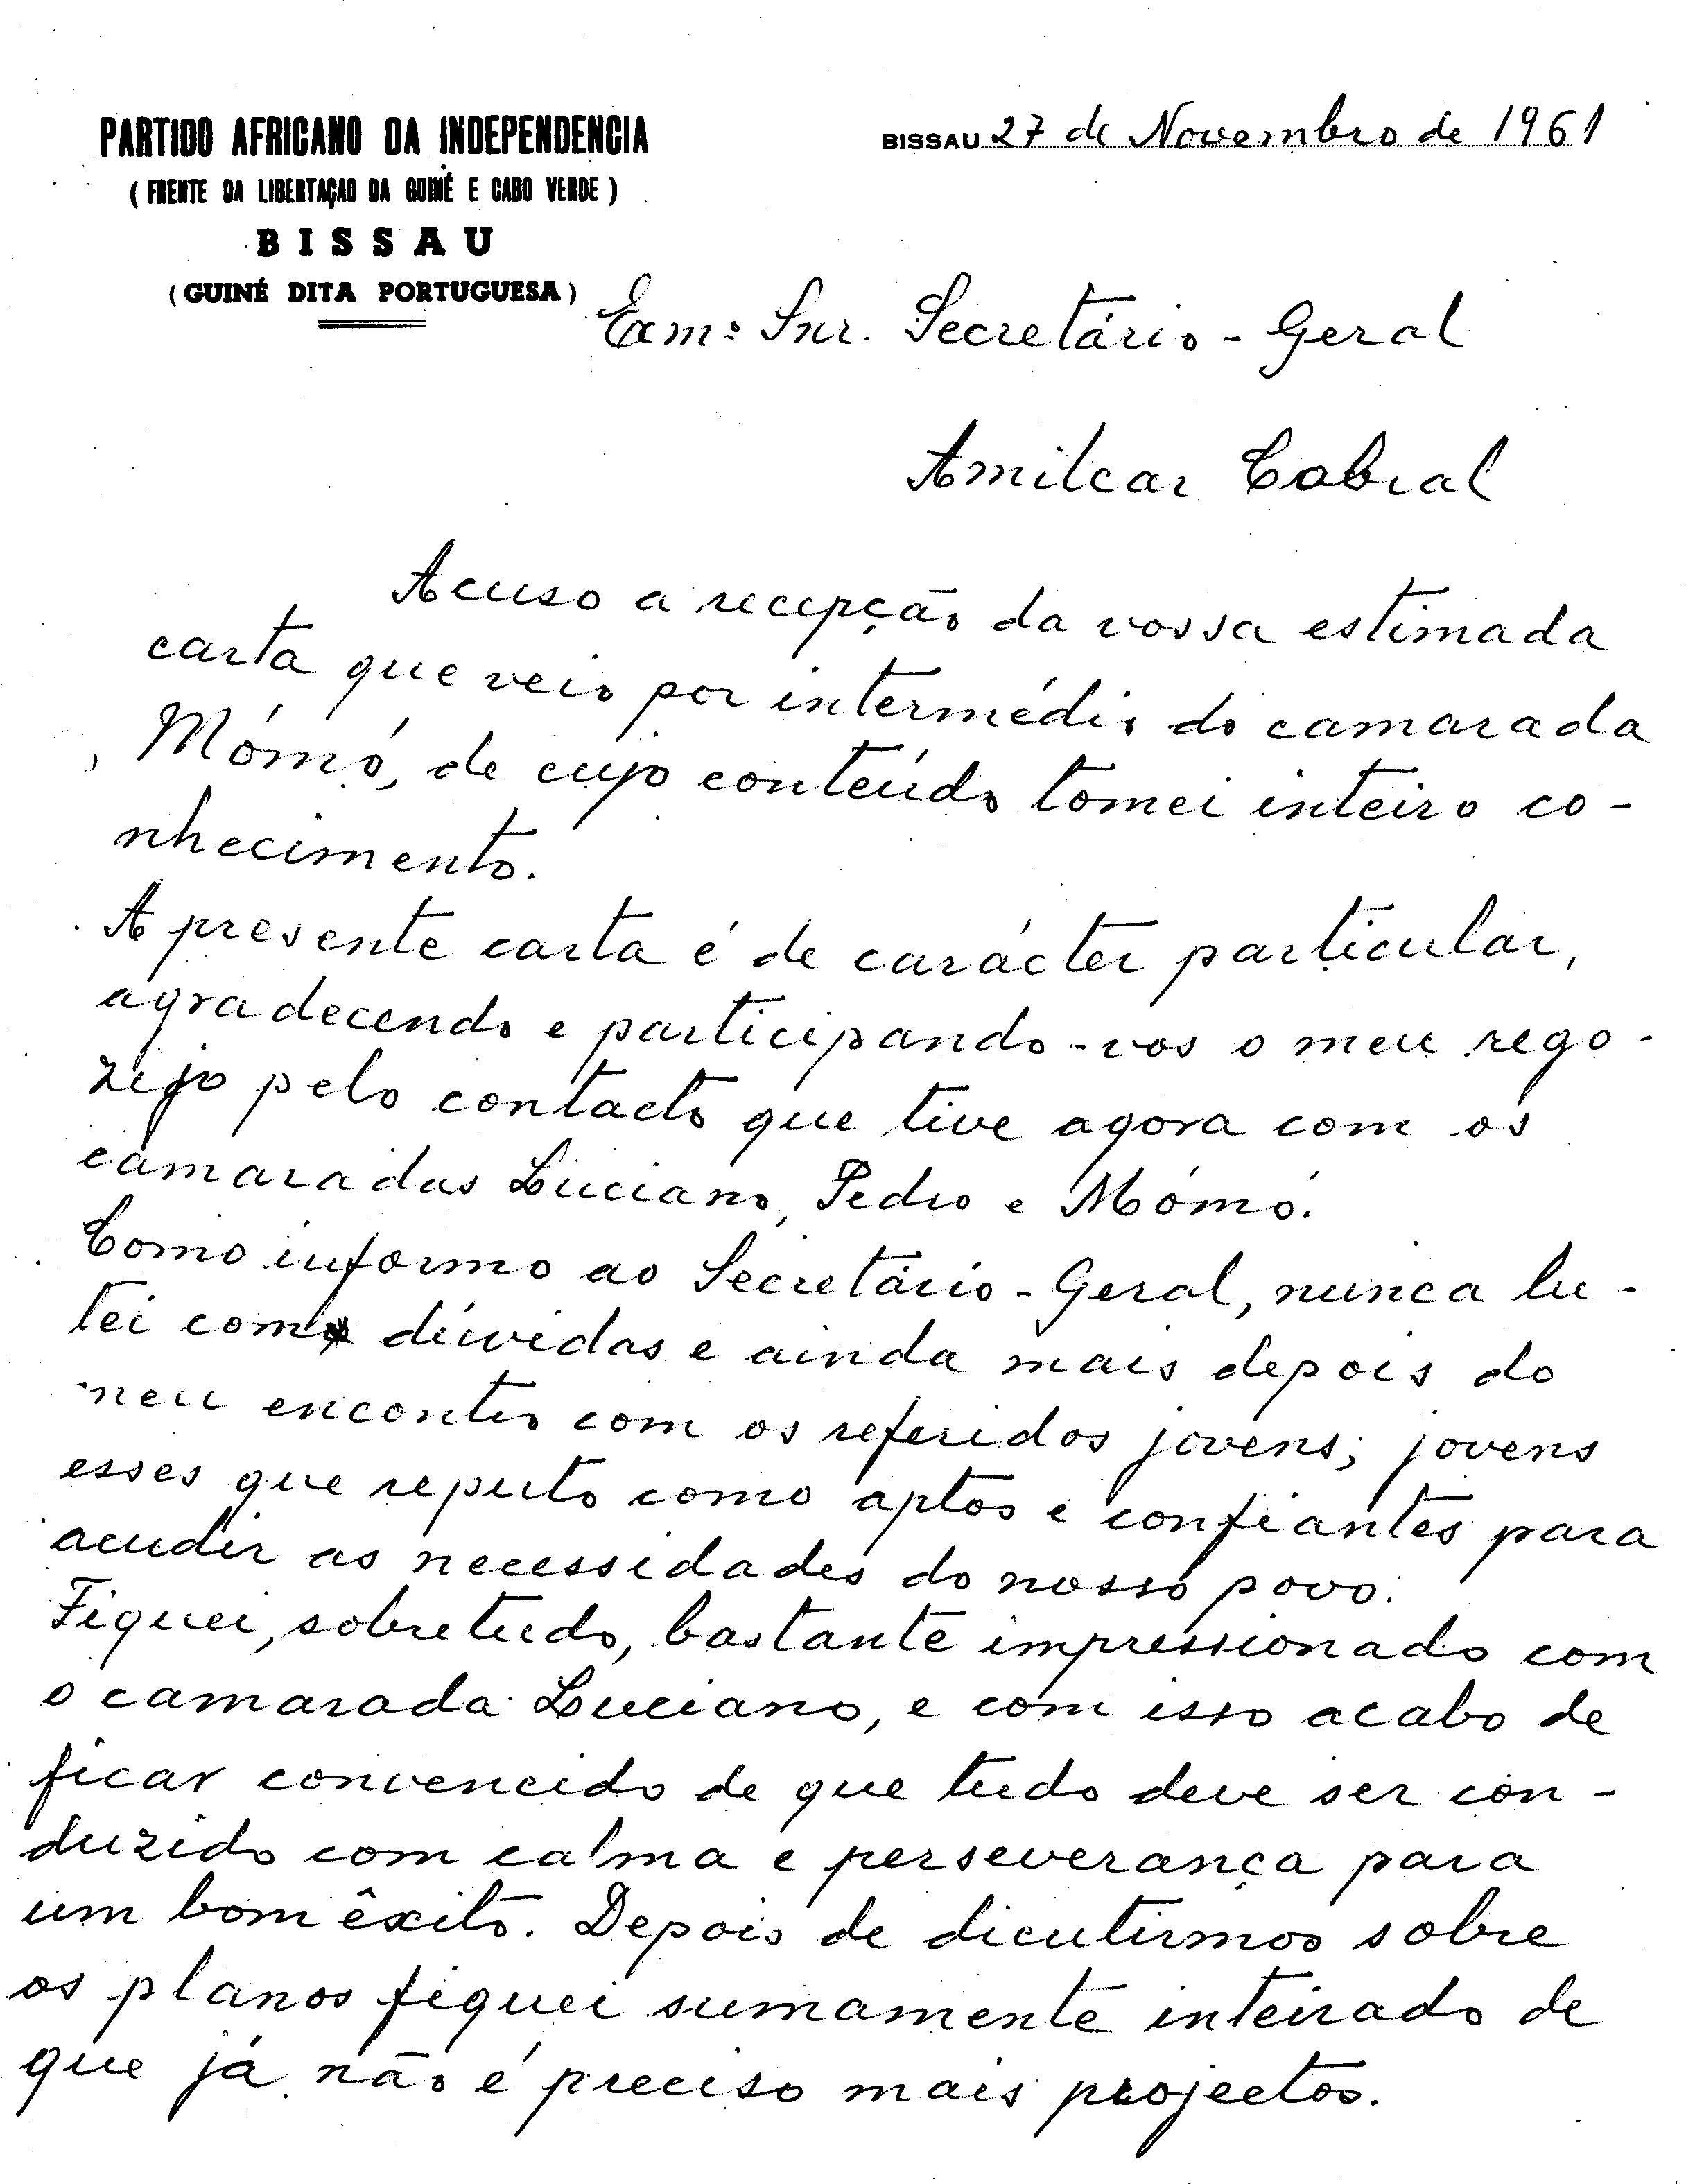 PARTIDO AFRICANO DA INDEPENDENCIA
( FRENTE DA LIBERTAÇAO DA GUINÉ E CABO VERDE )
BISSAU
( GUINÉ DITA PORTUGUESA )
BISSAU 27 de Novembro de 1961
Exmº Snr. Secretário-Geral
Amilcar Cabral
Acuso a recepção da vossa estimada
carta que veio por intermédio do camarada
Mómó, de cujo conteúdo tomei inteiro co-
nhecimento.
A presente carta é de carácter particular,
agradecendo e participando-vos o meu rego-
zijo pelo contacto que tive agora com os
camaradas Luciano, Pedro e Mómó.
Como informo ao Secretário-Geral, nunca lu-
tei com dúvidas e ainda mais depois do
meu encontro com os referidos jovens; jovens
esses que reputo como aptos e confiantes para
acudir as necessidades do nosso povo.
Fiquei, sobretudo, bastante impressionado com
o camarada Luciano, e com isso acabo de
ficar convencido de que tudo deve ser con-
duzido com calma e perseverança para
um bom êxito. Depois de dicutirmos sobre
os planos fiquei sumamente inteirado de
que já não é preciso mais projectos.